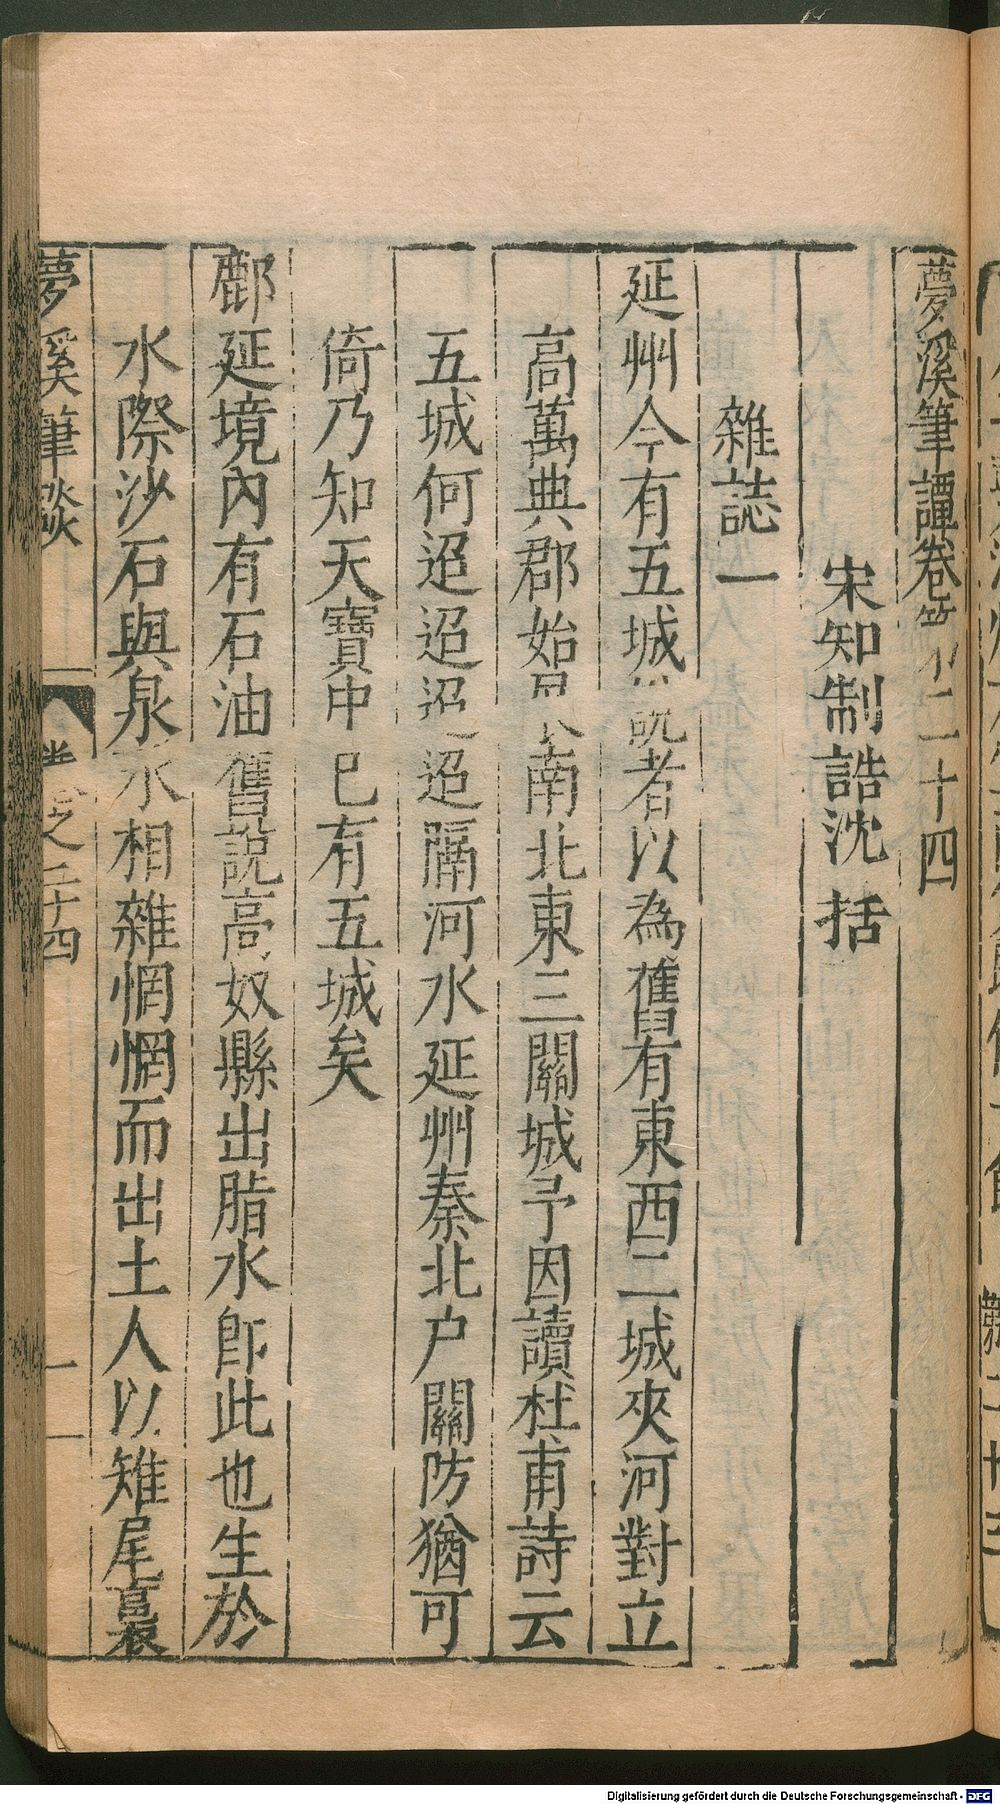 夢溪筆譚卷第二十四
宋知制誥沈括
雜誌一
延州今有五城說者以為舊有東西二城夾河對立
高萬典郡始展南北東三關城予因讀杜甫詩云
五城何迢迢迢迢隔河水延州秦北户關防猶可
倚乃知天寶中已有五城矣
鄜延境內有石油舊說高奴縣出脂水即此也生於
水際沙石與泉水相雜惘惘而出土人以雉尾裛
夢溪筆談 卷之二十四 一
Digitalisierung gefördert durch die Deutsche Forschungsgemeinschaft - DFG